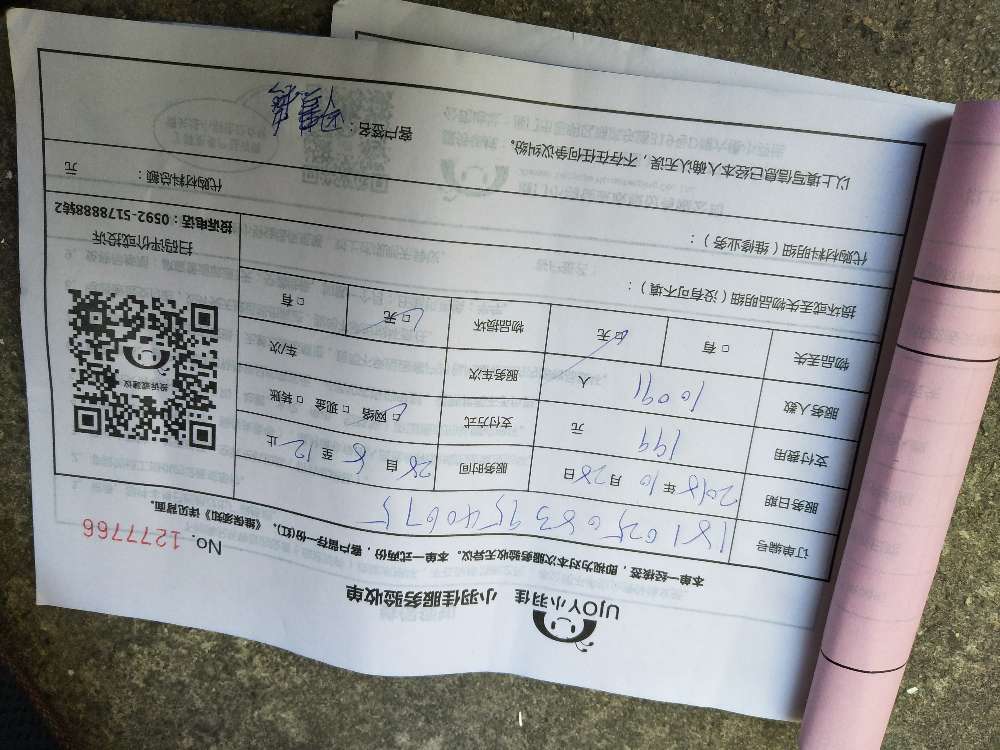 UJOY小羽佳 小羽佳服务验收单
本单一经核签，即视为对本次服务验收无异议。本单一式两份，客户留存一份(红)，《维保须知》详见背面。
No. 1277766
订单编号
服务日期 2018年10月28日 服务时间 28自8至12止
支付费用 199 元 支付方式 □网络 □现金 □转账
服务人数 人 服务车次 车次
物品丢失 □有 □无 物品损坏 □无 □有
损坏或丢失物品明细（没有可不填）：
代购材料明细（维修业务）：
代购材料总额： 元
以上填写信息已经本人确认无误，不存在任何争议纠纷。 客户签名：
投诉或建议
扫码评价或投诉
投诉电话：0592-5178888转2